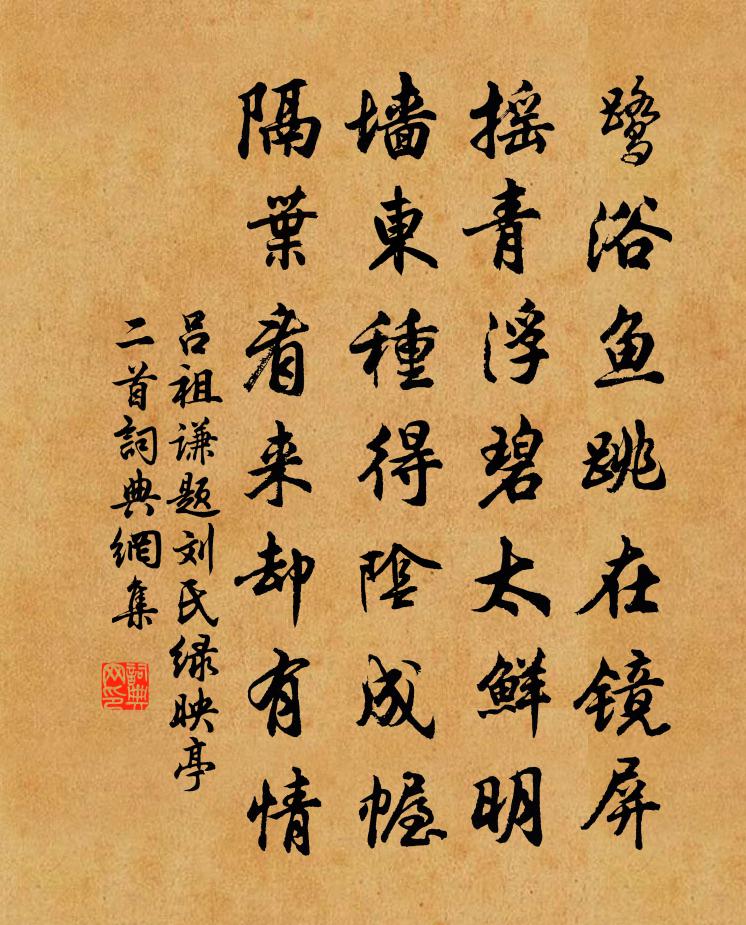 鹭浴鱼跳在镜屏
摇青浮碧太鲜明
墙東種得陰成幄
隔葉看来却有情
吕祖谦题刘氏绿映亭
二首詞典網集
詞典网印